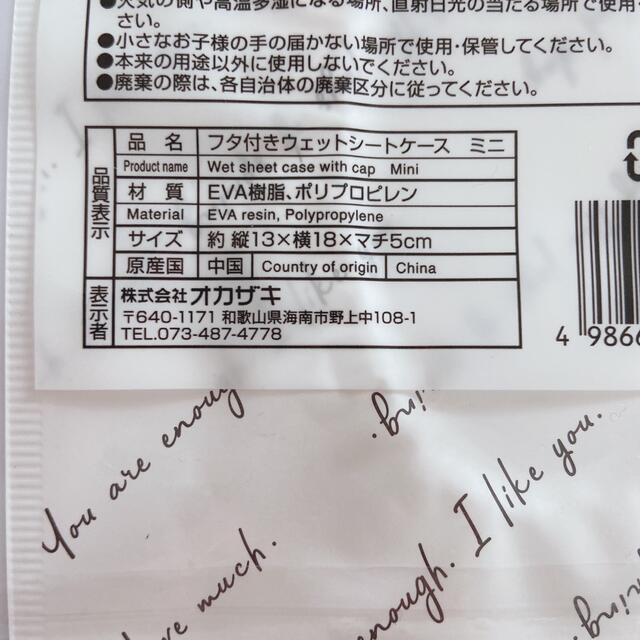 ●火気の側や高温多湿になる場所、直射日光の当たる場所で使用・
さい。
●小さなお子様の手の届かない場所で使用・保管してください。
●本来の用途以外に使用しないでください。
●廃棄の際は、各自治体の廃棄区分に従ってください。
品質表示
品 名 フタ付きウェットシートケース ミニ
Product name Wet sheet case with cap Mini
材 質 EVA樹脂、ポリプロピレン
Material EVA resin, Polypropylene
サイズ 約 縦13×横18×マチ5cm
原産国 中国 Country of origin China
表示者
株式会社オカザキ
〒640-1171 和歌山県海南市野上中108-1
TEL.073-487-4778
4 9866
You are enough.
I like you.
much.
enough.